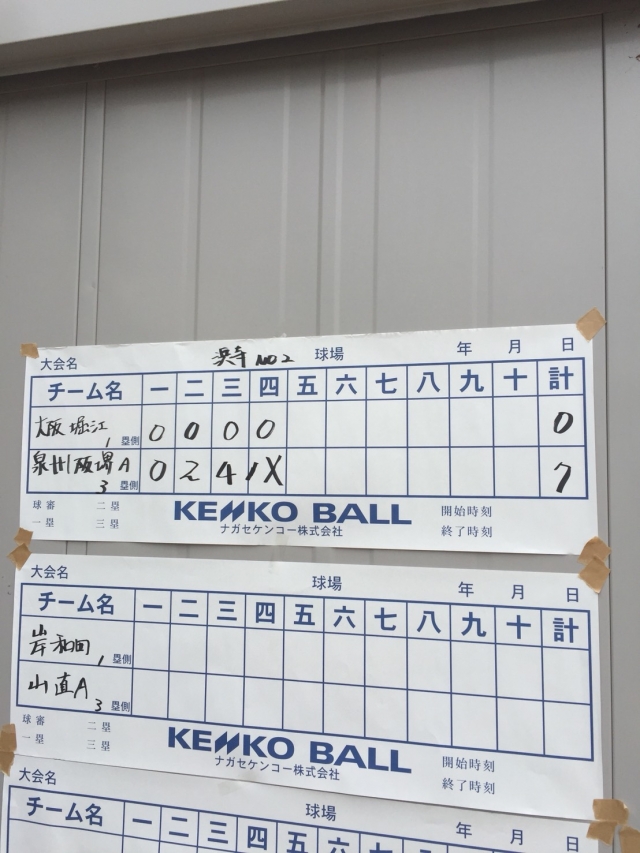 大会名 浜寺 NO2 球場 年 月 日
チーム名 一 二 三 四 五 六 七 八 九 十 計
大阪堀江 1 塁側 0 0 0 0 0
泉州阪堺A 3 塁側 0 2 4 1X 7
球審 二塁 KENKO BALL 開始時刻
一塁 三塁 ナガセケンコー株式会社 終了時刻
大会名 球場 年 月 日
チーム名 一 二 三 四 五 六 七 八 九 十 計
岸和田 1 塁側
山直A 3 塁側
球審 二塁 KENKO BALL 開始時刻
一塁 三塁 ナガセケンコー株式会社 終了時刻
大会名 球場 年 月 日
チーム名 一 二 三 四 五 六 七 八 九 十 計